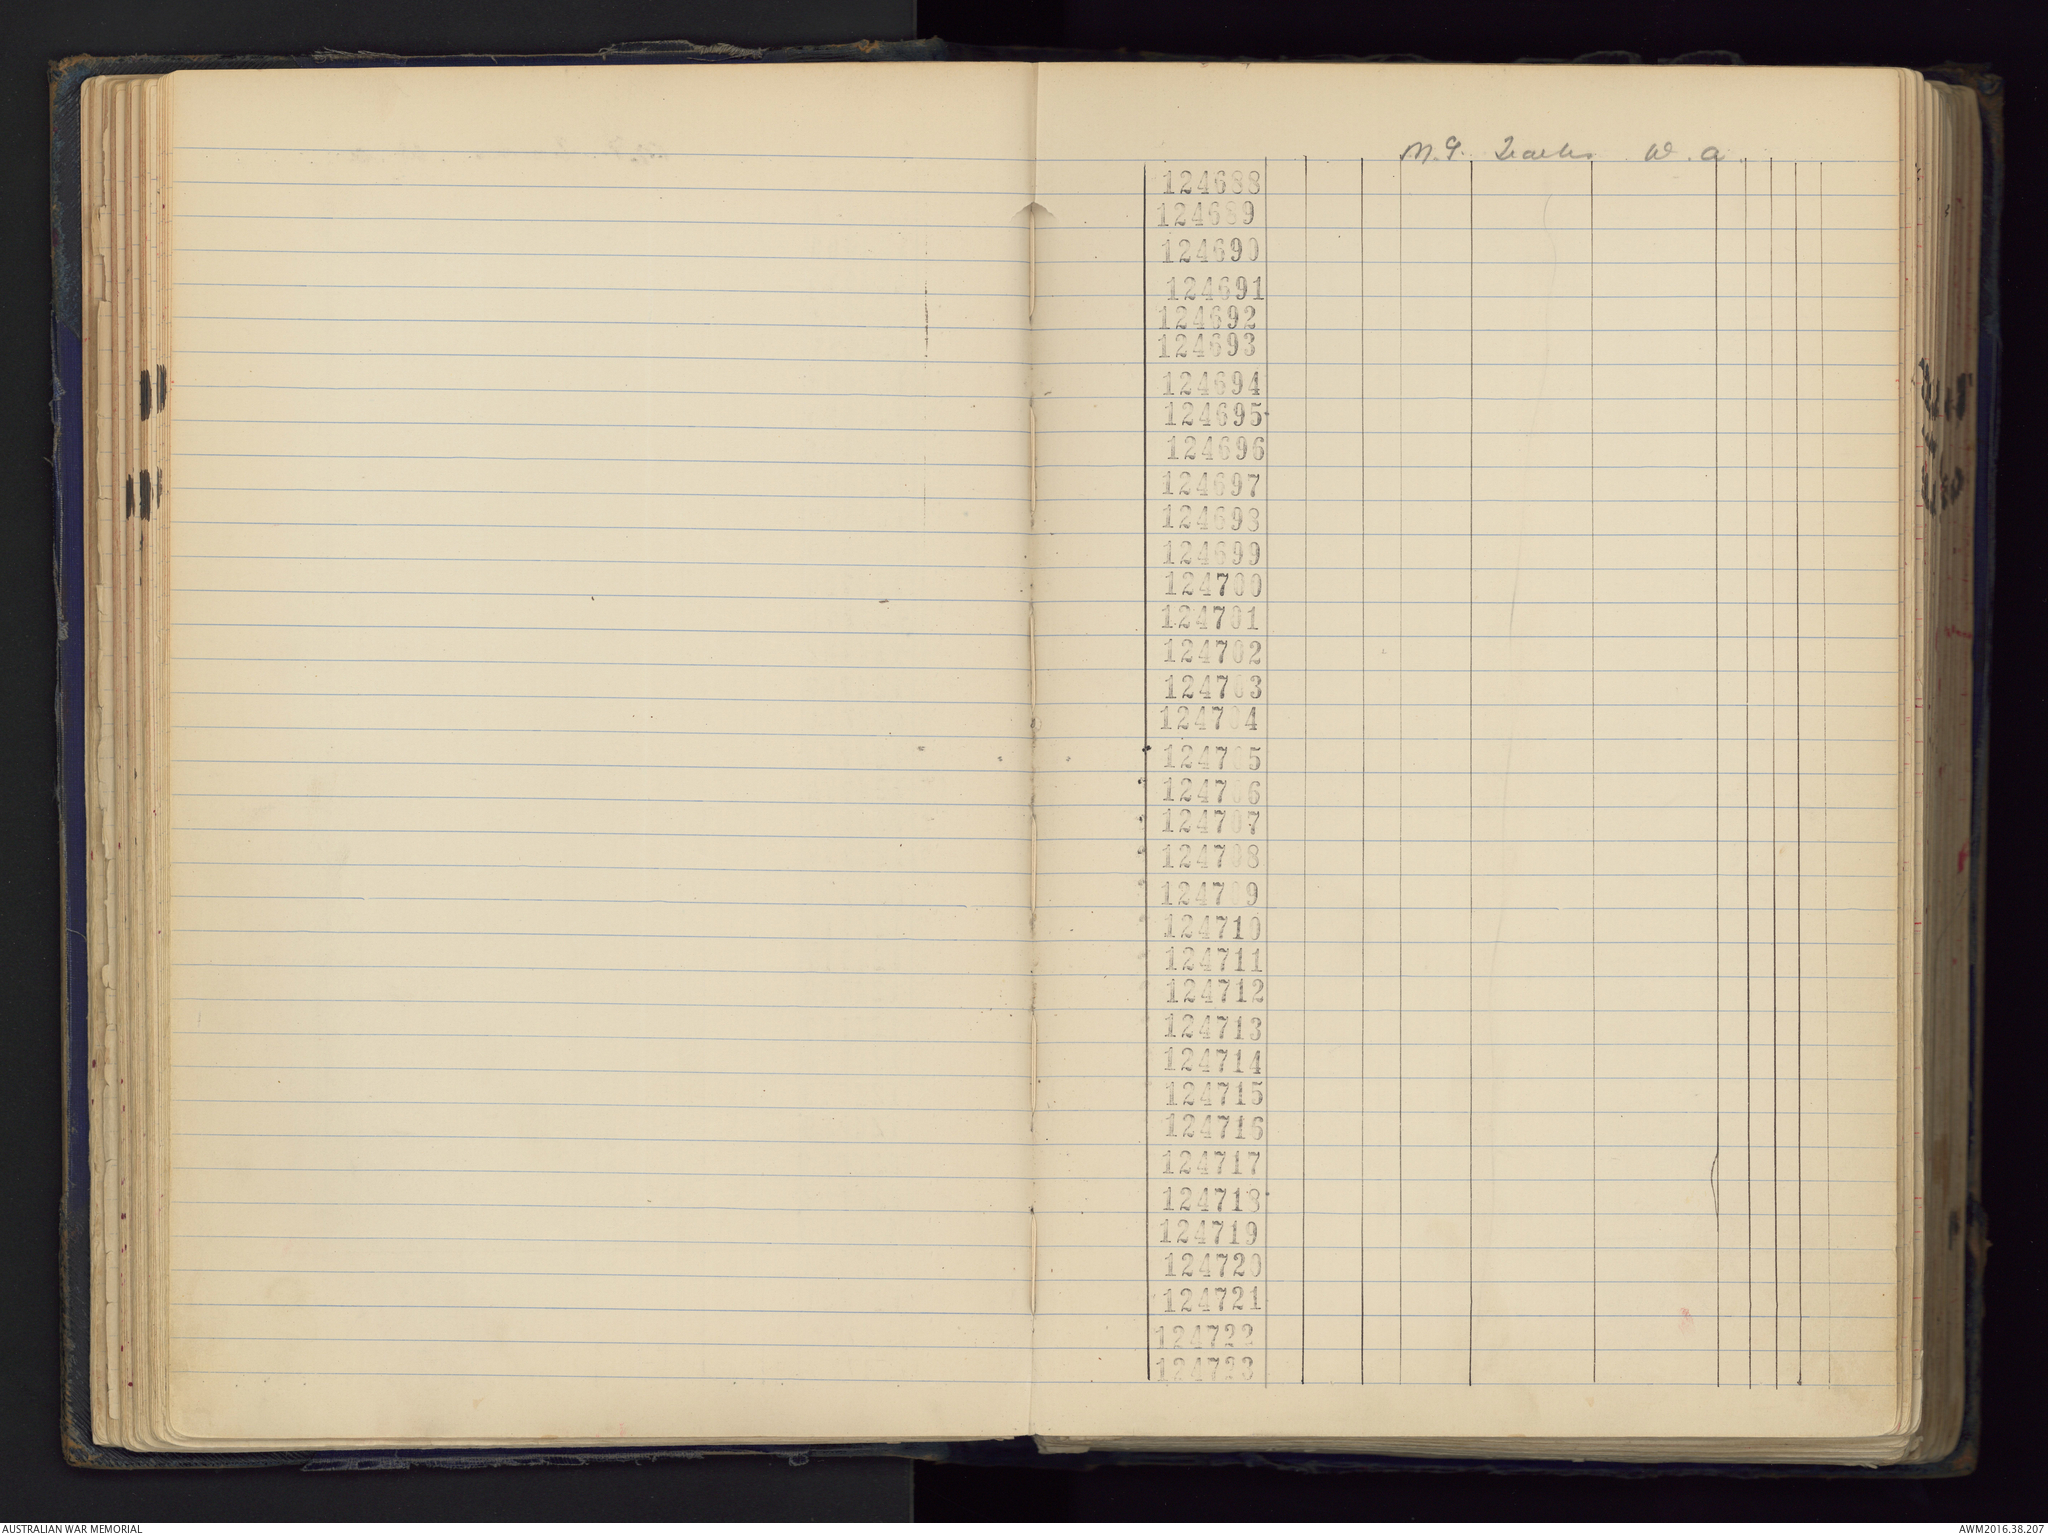 M.G. W.A.
124688
124689
124690
124691
124692
124693
124694
124695
124696
124697
124698
124699
124700
124701
124702
124703
124704
124705
124706
124707
124708
124709
124710
124711
124712
124713
124714
124715
124716
124717
124718
124719
124720
124721
124722
124723
AUSTRALIAN WAR MEMORIAL
AWM2016.38.207